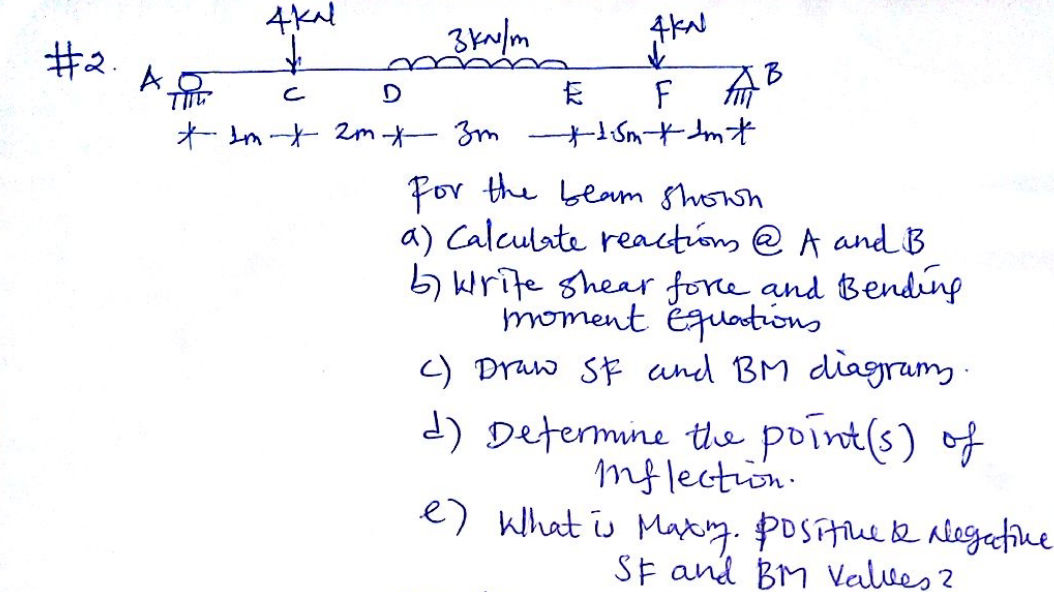 4kN 3kN/m 4kN
#2. A C D E F B
1m 2m 3m 1.5m 1m
For the beam shown
a) Calculate reactions @ A and B
b) Write shear force and Bending
moment Equations
c) Draw SF and BM diagrams.
d) Determine the point(s) of
inflection.
e) What is Maxm. positive & Negative
SF and BM values?